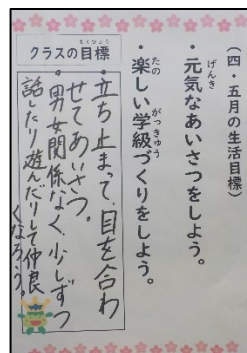 （四・五月の生活目標）
・元気なあいさつをしよう。
・楽しい学級づくりをしよう。
クラスの目標
・立ち止まって、目を合わ
せてあいさつ。
・男女関係なく、少しずつ
話したり遊んだりして仲良
くなろう。